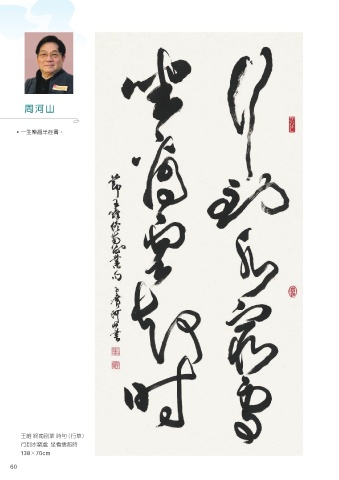 周河山
• 一生樂趣半在書。
行到水窮處
坐看雲起時
節王維終南別業句 周河山書
王維 終南別業 詩句 (行草)
行到水窮處 坐看雲起時
138×70cm
60